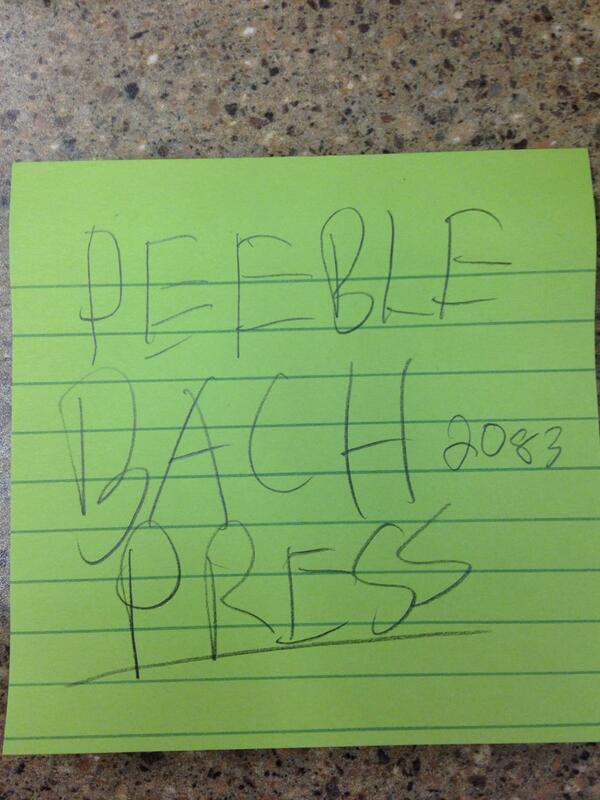 PEEBLE
BACH 2083
PRESS